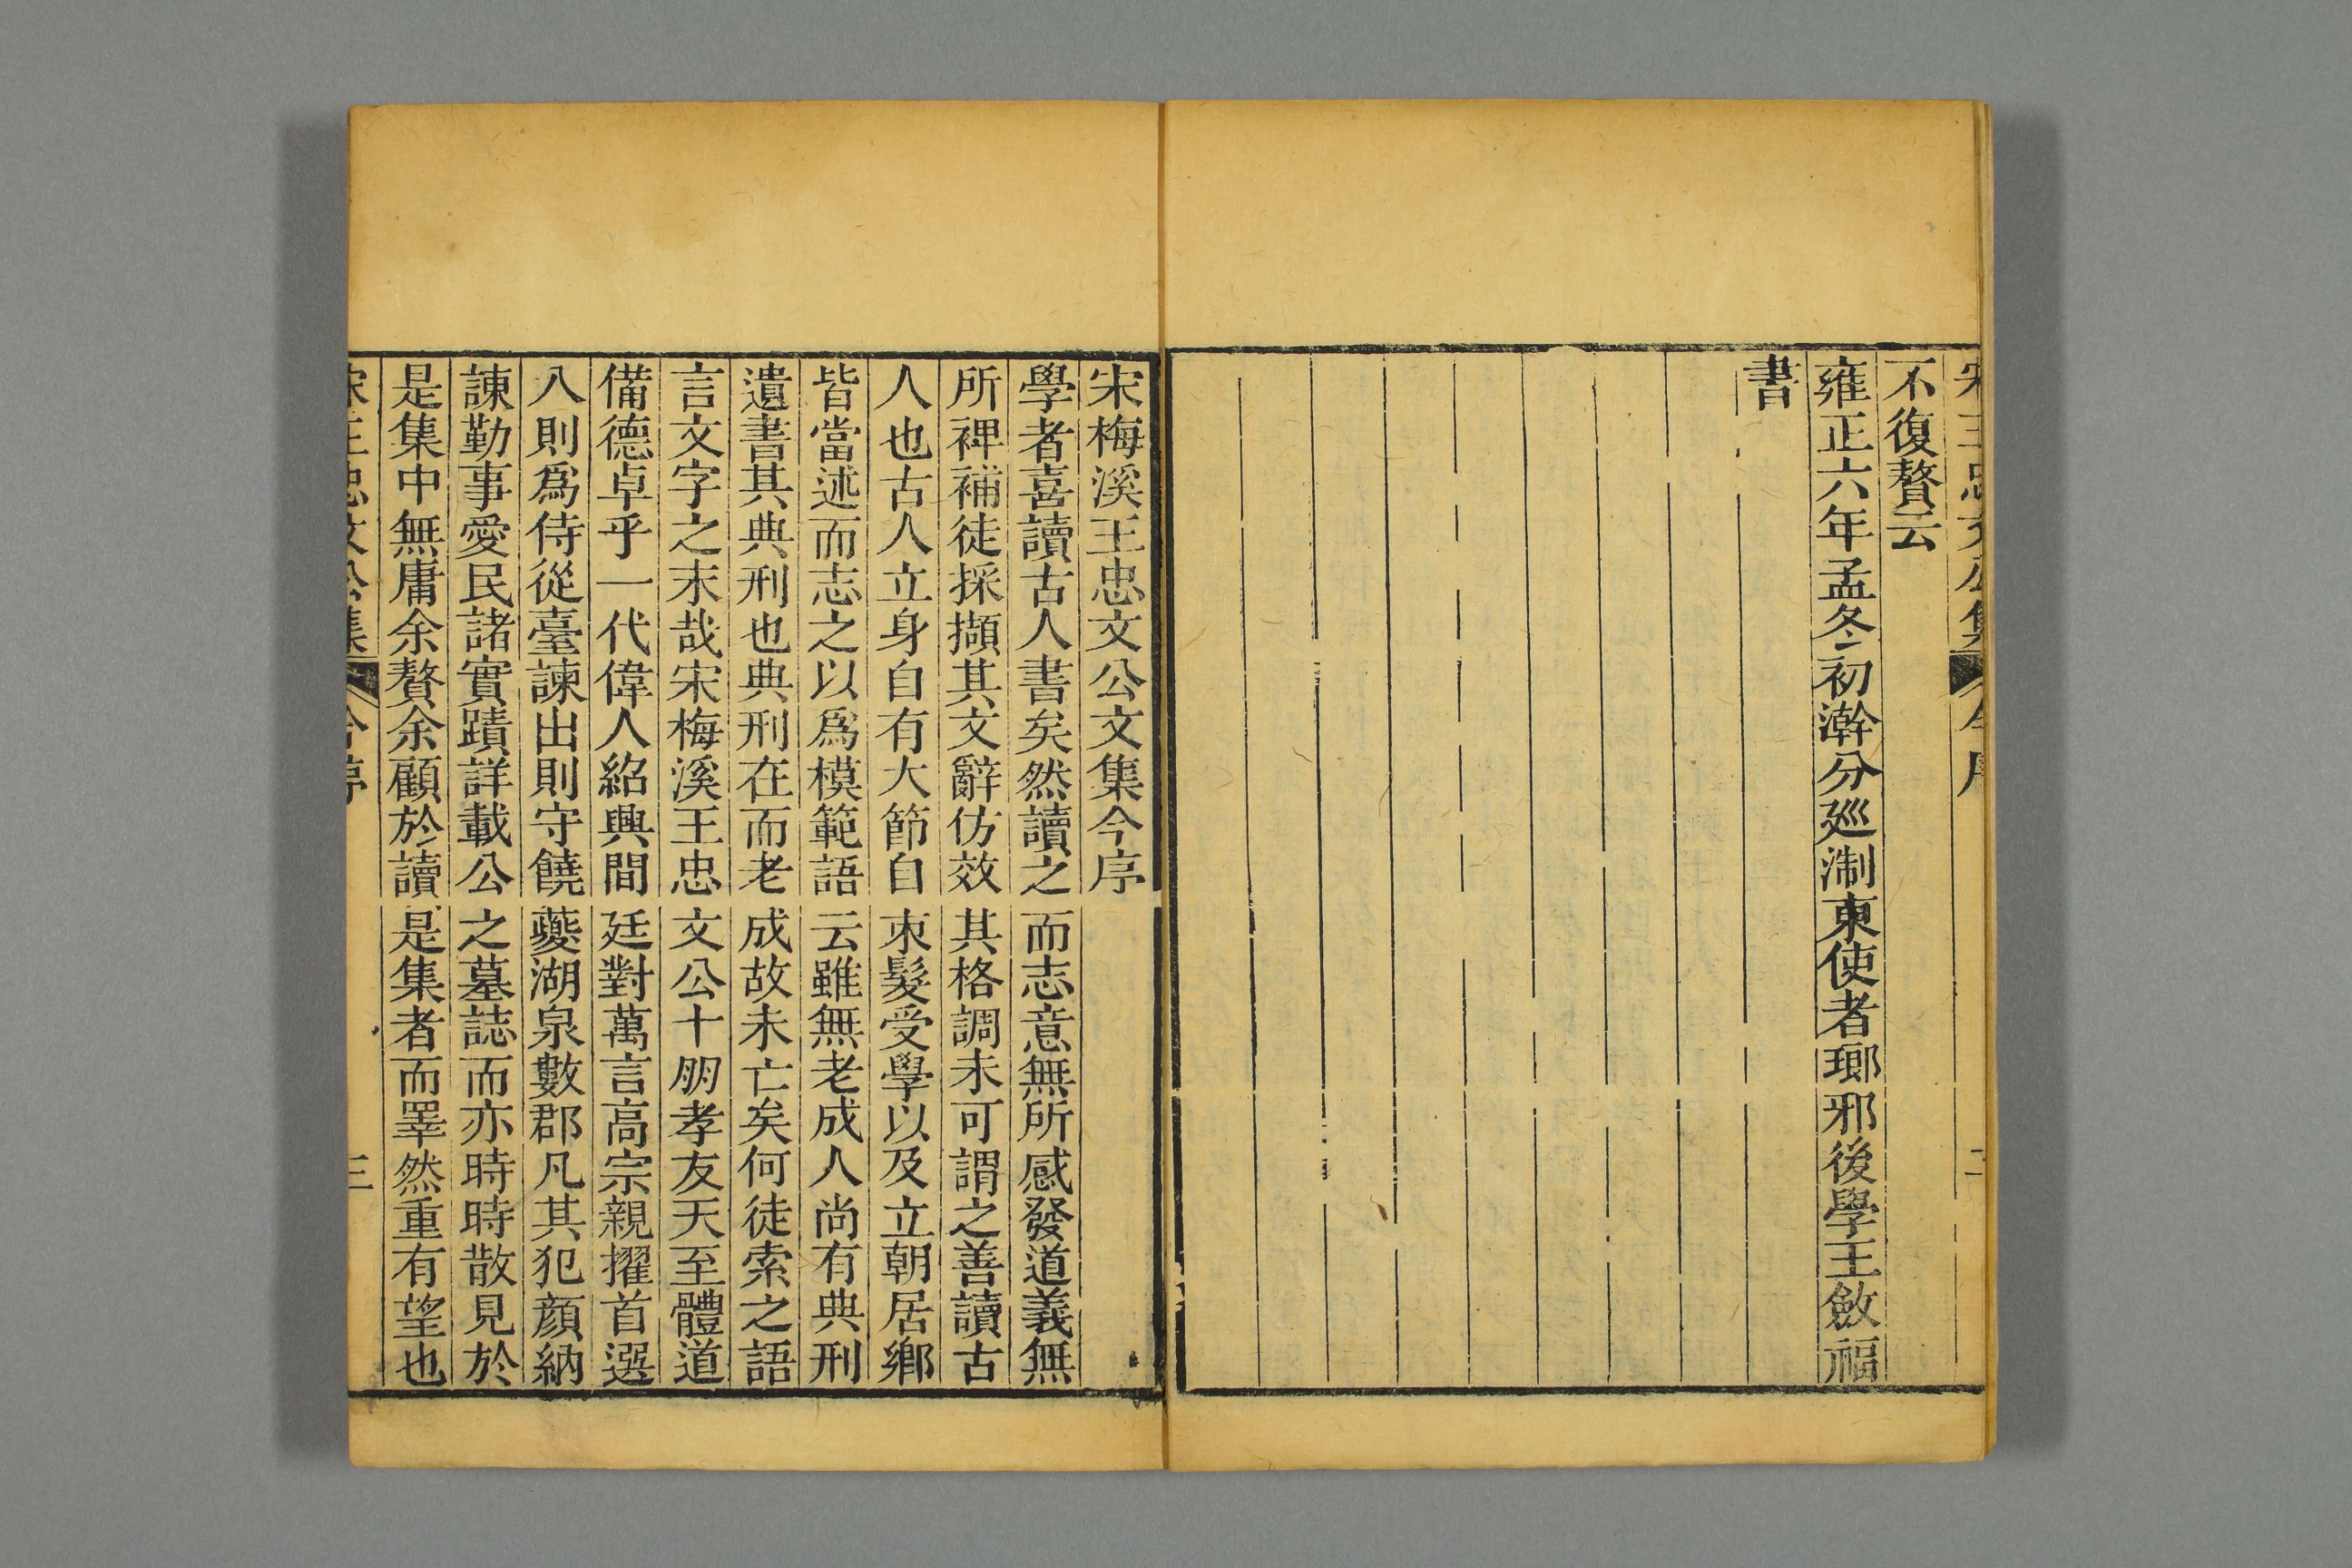 不復贅云
雍正六年孟冬初澣分廵淛東使者瑯邪後學王斂福
書
宋梅溪王忠文公文集今序
學者喜讀古人書矣然讀之而志意無所感發道義無
所裨補徒採擷其文辭仿效其格調未可謂之善讀古
人也古人立身自有大節自束髮受學以及立朝居鄉
皆當述而志之以爲模範語云雖無老成人尚有典刑
遺書其典刑也典刑在而老成故未亡矣何徒索之語
言文字之末哉宋梅溪王忠文公十朋孝友天至體道
備德卓乎一代偉人紹興間廷對萬言高宗親擢首選
入則爲侍從臺諫出則守饒夔湖泉數郡凡其犯顔納
諫勤事愛民諸實蹟詳載公之墓誌而亦時時散見於
是集中無庸余贅余顧於讀是集者而睪然重有望也